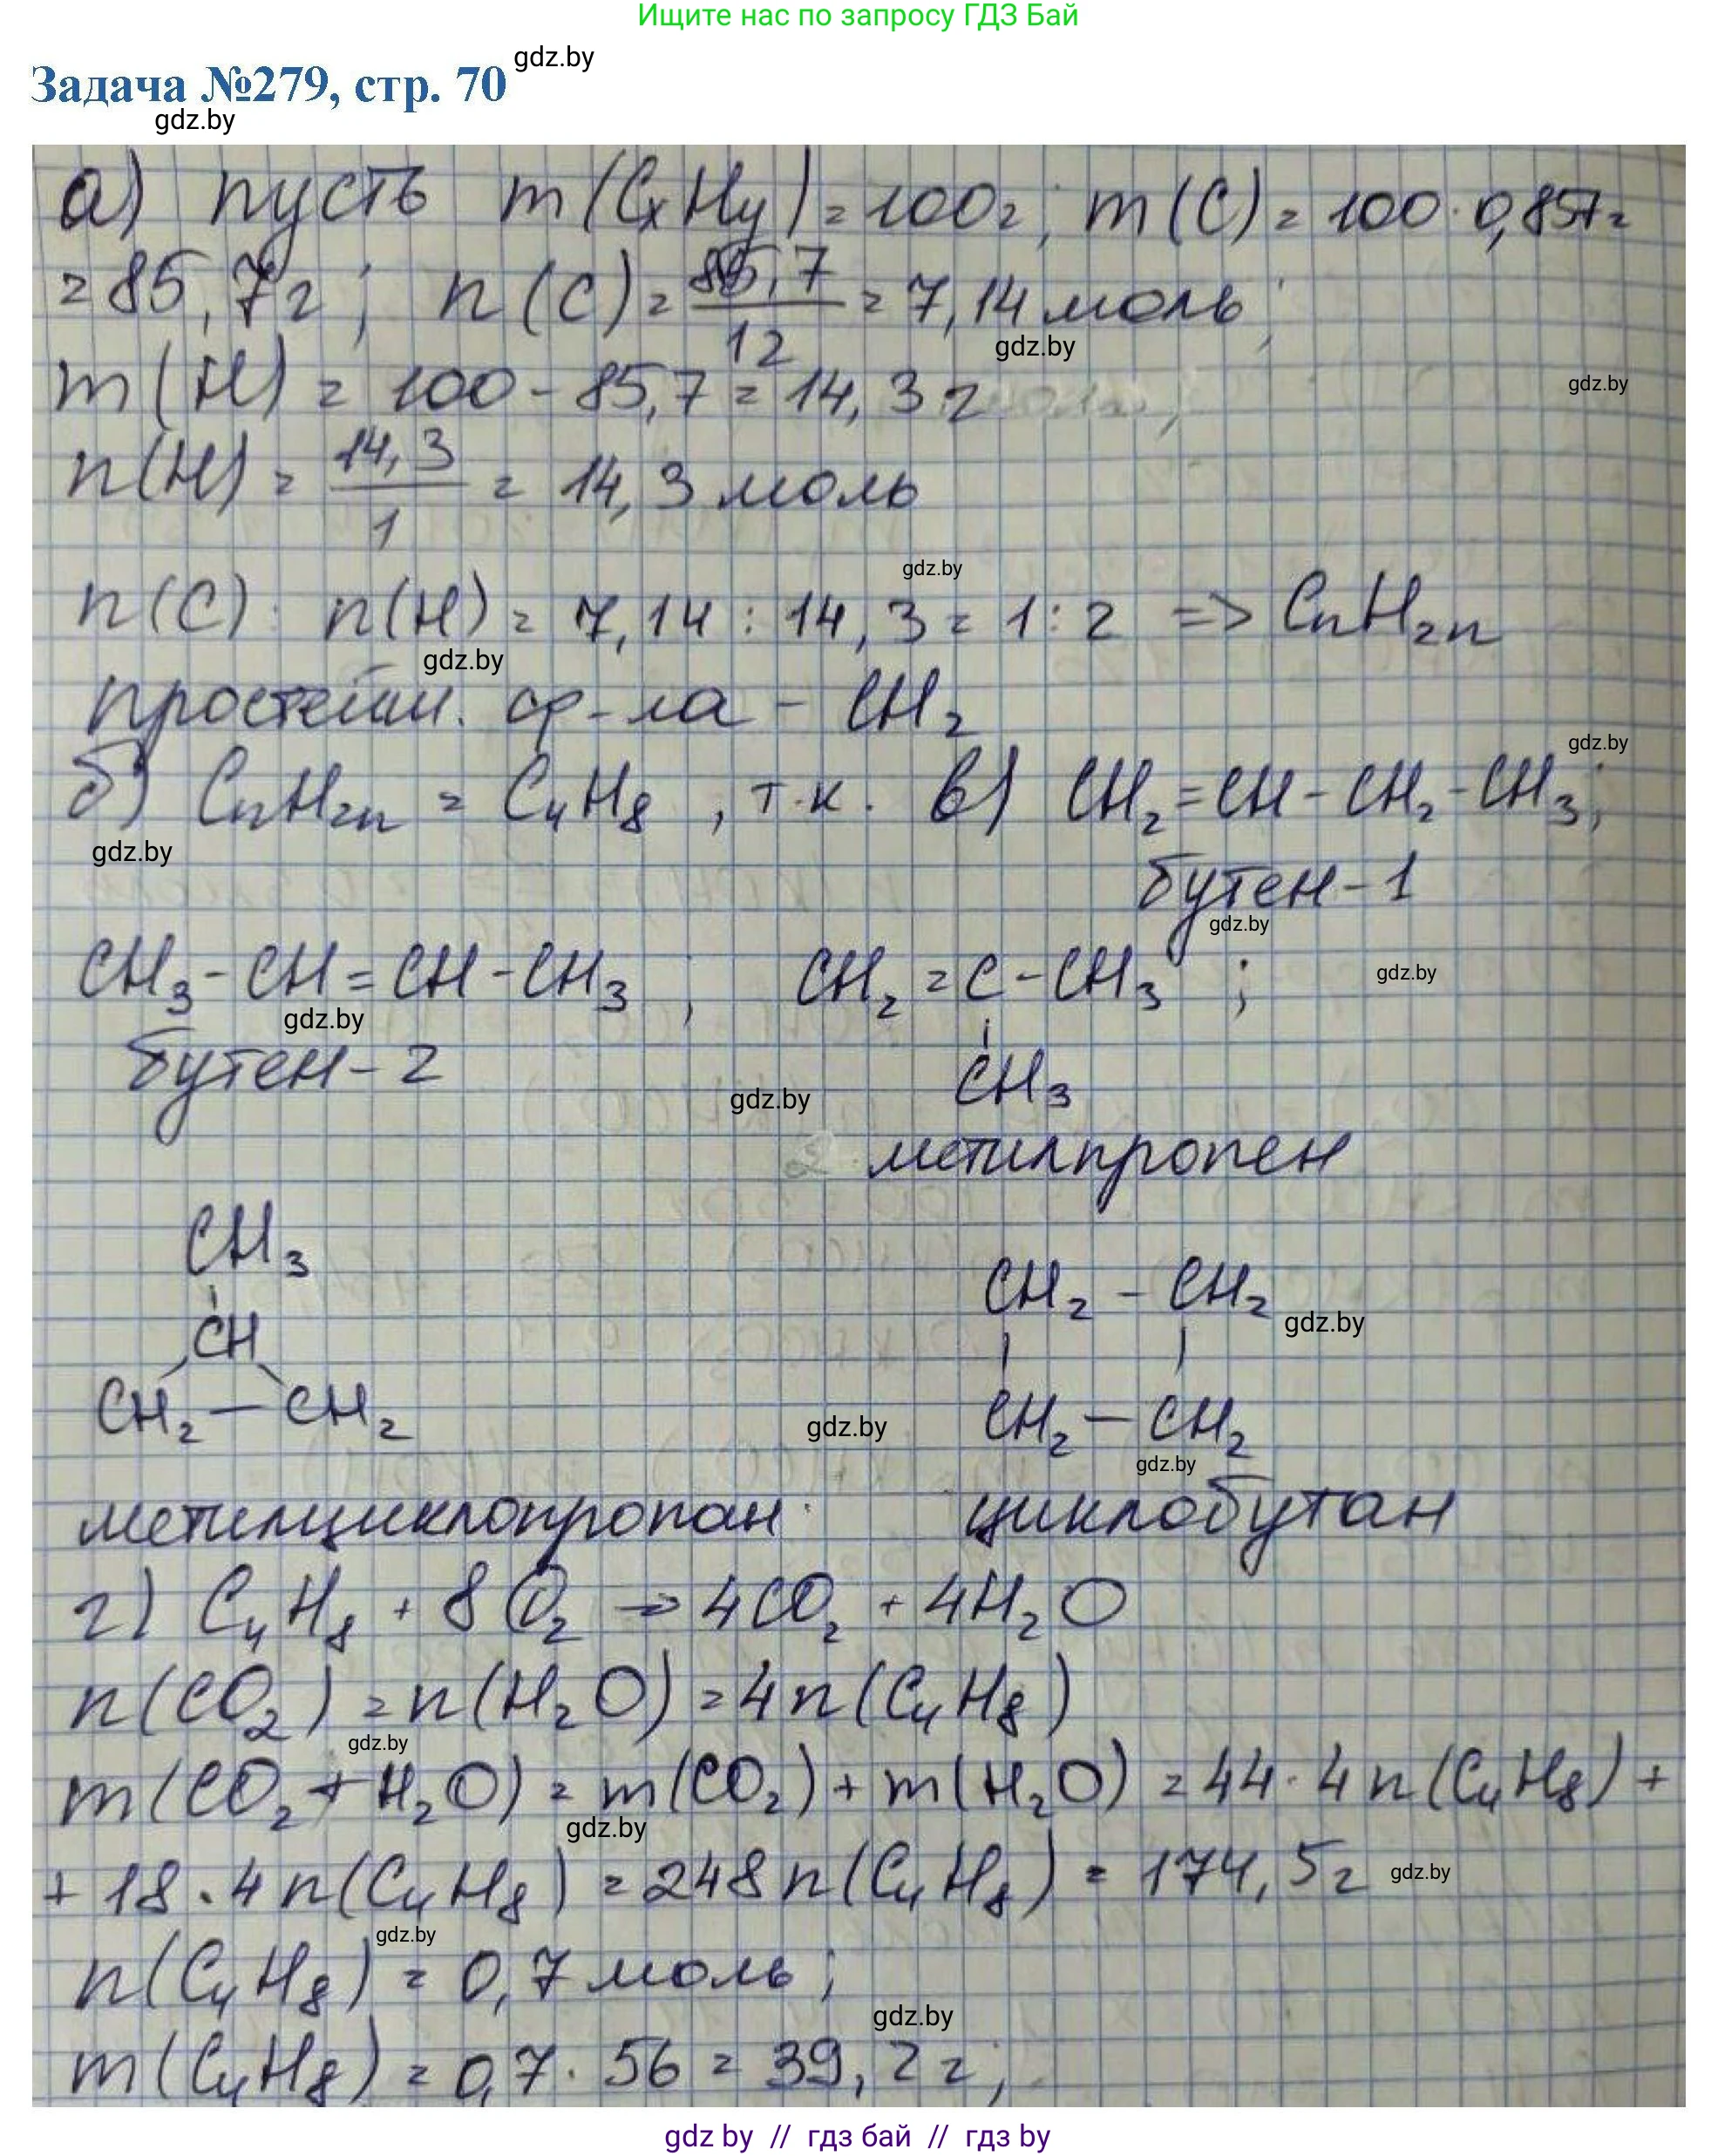 Ищите нас по запросу ГДЗ Бай
gdz.by
Задача №279, стр. 70
gdz.by
а) пусть m(CxHy)=100г; m(C)=100·0,857=
=85,7г; n(C)=85,7/12=7,14моль;
gdz.by
m(H)=100-85,7=14,3г
gdz.by
n(H)=14,3/1=14,3моль
gdz.by
n(C):n(H)=7,14:14,3=1:2 => CnH2n
gdz.by
простейш. ф-ла - CH2
gdz.by
б) CnH2n = C4H8, т.к. в) CH2=CH-CH2-CH3;
gdz.by
бутен-1
gdz.by
CH3-CH=CH-CH3, CH2=C-CH3;
gdz.by
gdz.by
бутен-2 CH3
gdz.by
2 метилпропен
CH3
CH2-CH2
gdz.by
CH
CH2-CH2 CH2-CH2
gdz.by
gdz.by
метилциклопропан циклобутан
г) C4H8 + 8O2 → 4CO2 + 4H2O
n(CO2)=n(H2O)=4n(C4H8)
gdz.by
m(CO2+H2O)=m(CO2)+m(H2O)=44·4n(C4H8)+
gdz.by
+18·4n(C4H8)=248n(C4H8)=174,5г
gdz.by
gdz.by
n(C4H8)=0,7моль;
gdz.by
m(C4H8)=0,7·56=39,2г;
gdz by // гдз бай // гдз by